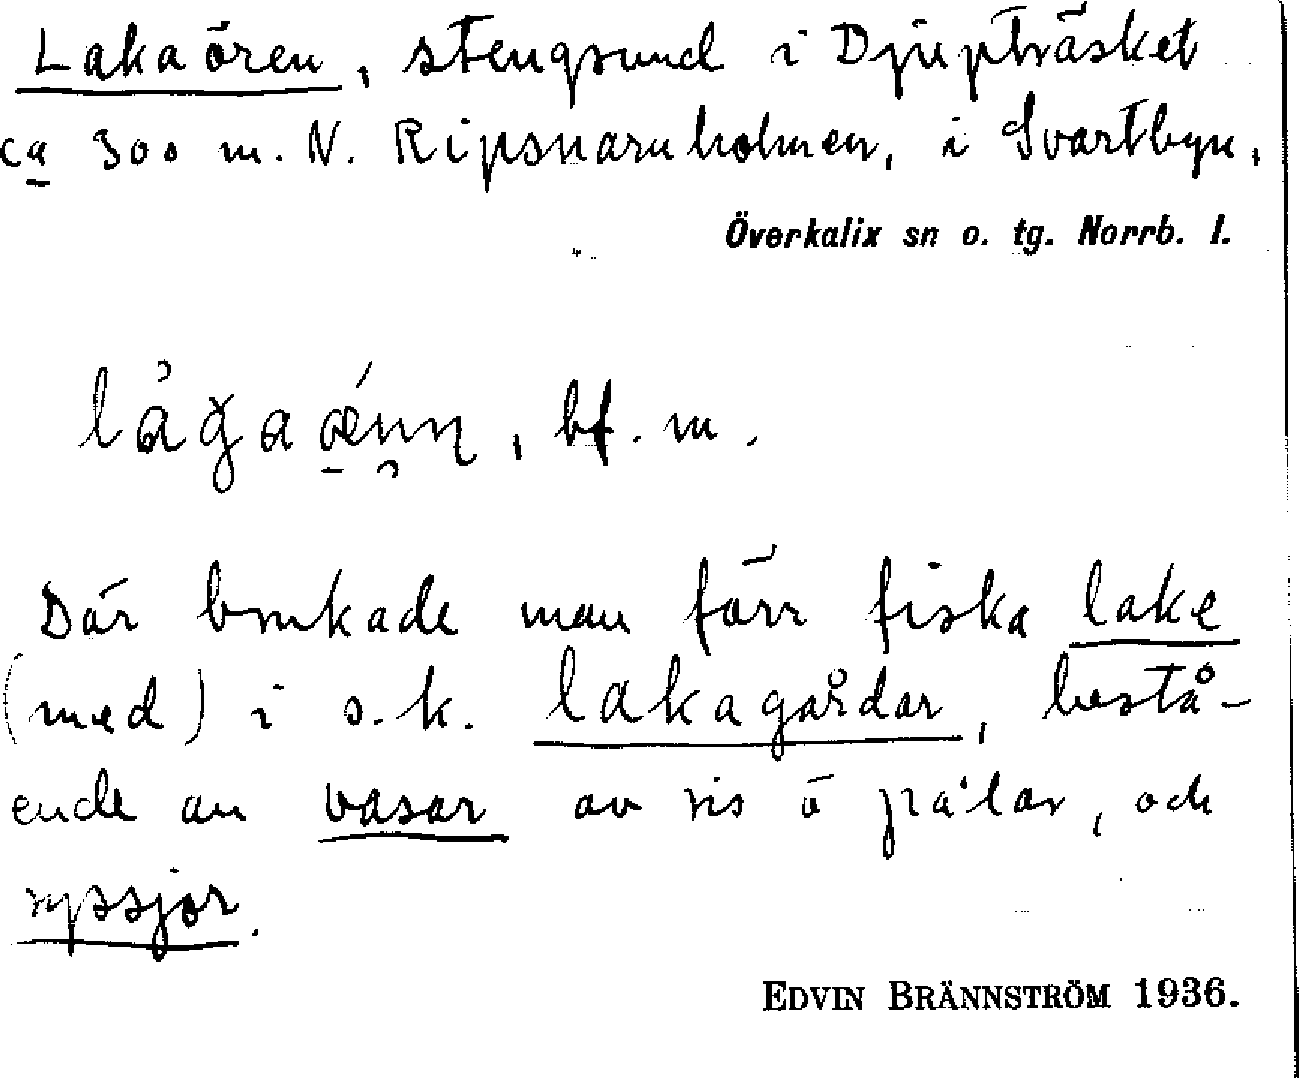 Lakaören, stengrund i Djupträsket
ca 300 m. N. Ripsnaruholmen, i Svartbyn,
Överkalix sn o. tg. Norrb. l.
bf. m.
Där brukade man förr fiska lake
(med) i s.k. lakagårdar, bestå-
ende av vasar av ris å pålar, och
ryssjor.
EDVIN BRÄNNSTRÖM 1936.